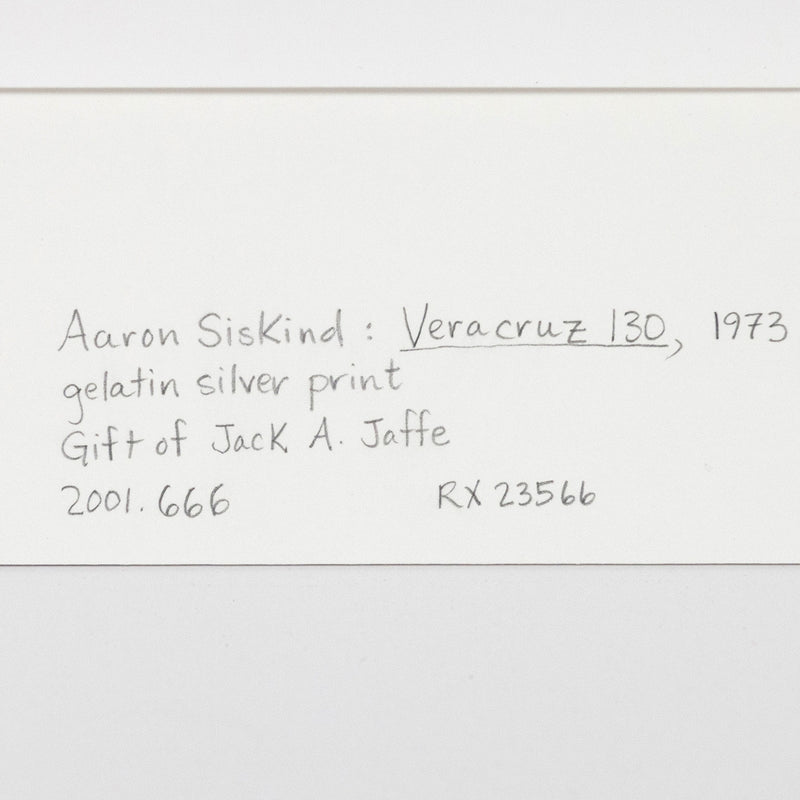 Aaron Siskind : Veracruz 130, 1973
gelatin silver print
Gift of Jack A. Jaffe
2001.666 RX 23566